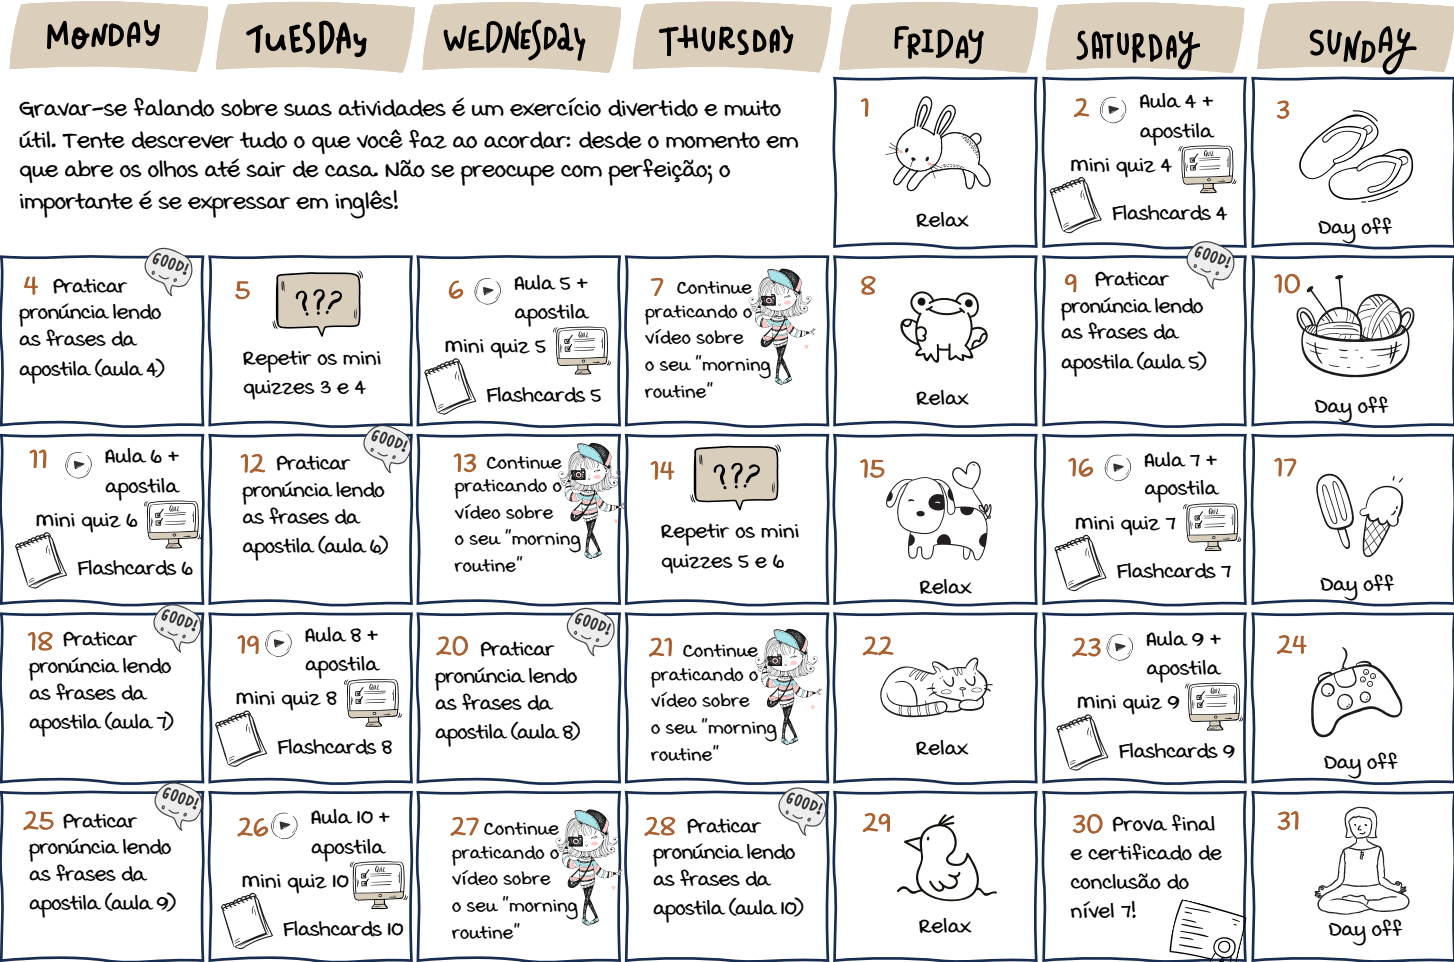 MONDAY TUESDAY WEDNESDAY THURSDAY FRIDAY SATURDAY SUNDAY
Gravar-se falando sobre suas atividades é um exercício divertido e muito
útil. Tente descrever tudo o que você faz ao acordar: desde o momento em
que abre os olhos até sair de casa. Não se preocupe com perfeição; o
importante é se expressar em inglês!
1
Relax
2 Aula 4 +
apostila
mini quiz 4
QUIZ
Flashcards 4
3
Day off
GOOD!
4 Praticar
pronúncia lendo
as frases da
apostila (aula 4)
5
???
Repetir os mini
quizzes 3 e 4
6 Aula 5 +
apostila
mini quiz 5
QUIZ
Flashcards 5
7 Continue
praticando o
vídeo sobre
o seu "morning
routine"
8
Relax
GOOD!
9 Praticar
pronúncia lendo
as frases da
apostila (aula 5)
10
Day off
11 Aula 6 +
apostila
mini quiz 6
QUIZ
Flashcards 6
GOOD!
12 Praticar
pronúncia lendo
as frases da
apostila (aula 6)
13 Continue
praticando o
vídeo sobre
o seu "morning
routine"
14
???
Repetir os mini
quizzes 5 e 6
15
Relax
16 Aula 7 +
apostila
mini quiz 7
QUIZ
Flashcards 7
17
Day off
GOOD!
18 Praticar
pronúncia lendo
as frases da
apostila (aula 7)
19 Aula 8 +
apostila
mini quiz 8
QUIZ
Flashcards 8
GOOD!
20 Praticar
pronúncia lendo
as frases da
apostila (aula 8)
21 Continue
praticando o
vídeo sobre
o seu "morning
routine"
22
Relax
23 Aula 9 +
apostila
mini quiz 9
QUIZ
Flashcards 9
24
Day off
GOOD!
25 Praticar
pronúncia lendo
as frases da
apostila (aula 9)
26 Aula 10 +
apostila
mini quiz 10
QUIZ
Flashcards 10
27 Continue
praticando o
vídeo sobre
o seu "morning
routine"
GOOD!
28 Praticar
pronúncia lendo
as frases da
apostila (aula 10)
29
Relax
30 Prova final
e certificado de
conclusão do
nível 7!
31
Day off